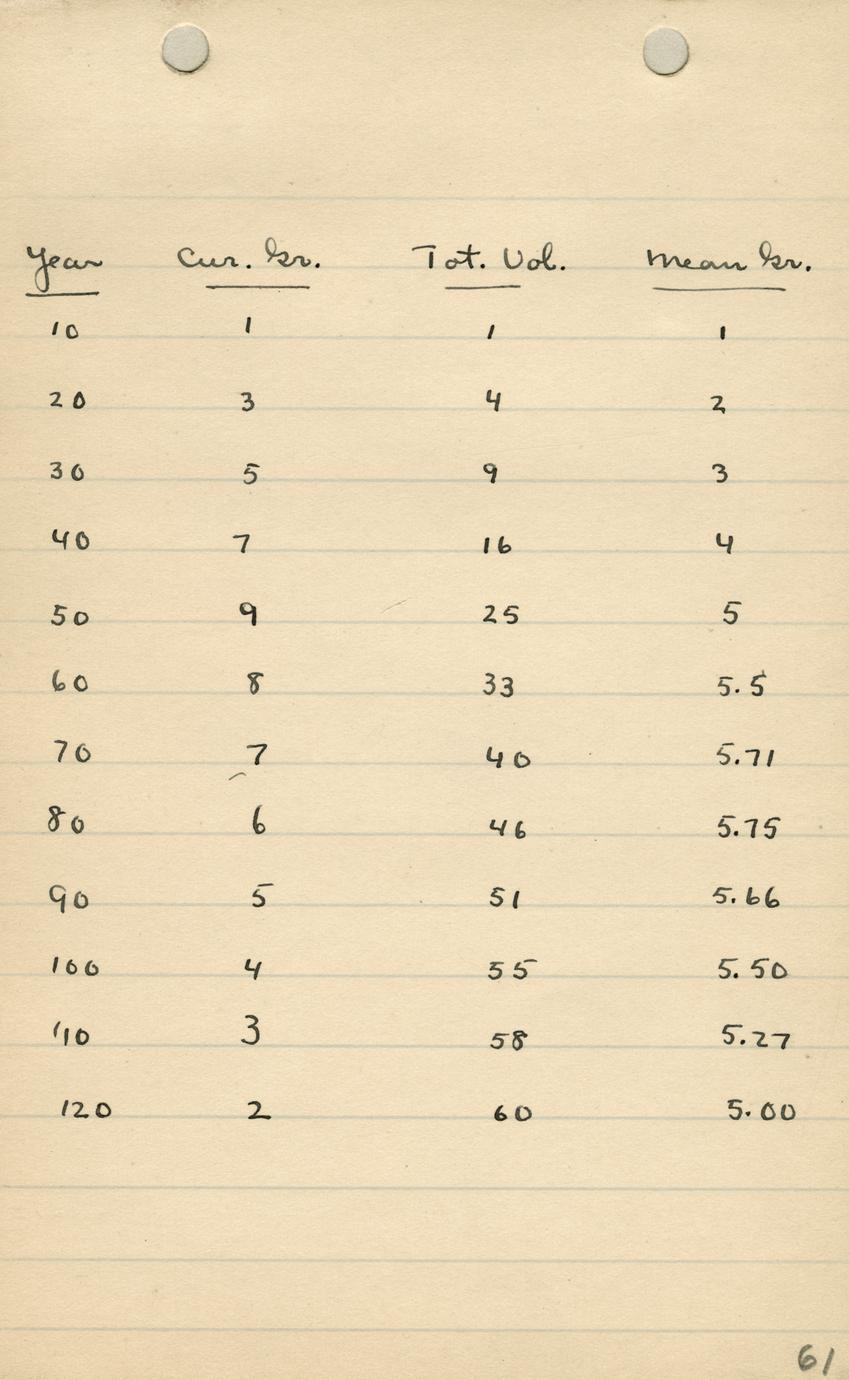 Year Cur. Gr. Tot. Vol. Mean Gr.
10 1 1 1
20 3 4 2
30 5 9 3
40 7 16 4
50 9 25 5
60 8 33 5.5
70 7 40 5.71
80 6 46 5.75
90 5 51 5.66
100 4 55 5.50
110 3 58 5.27
120 2 60 5.00
61